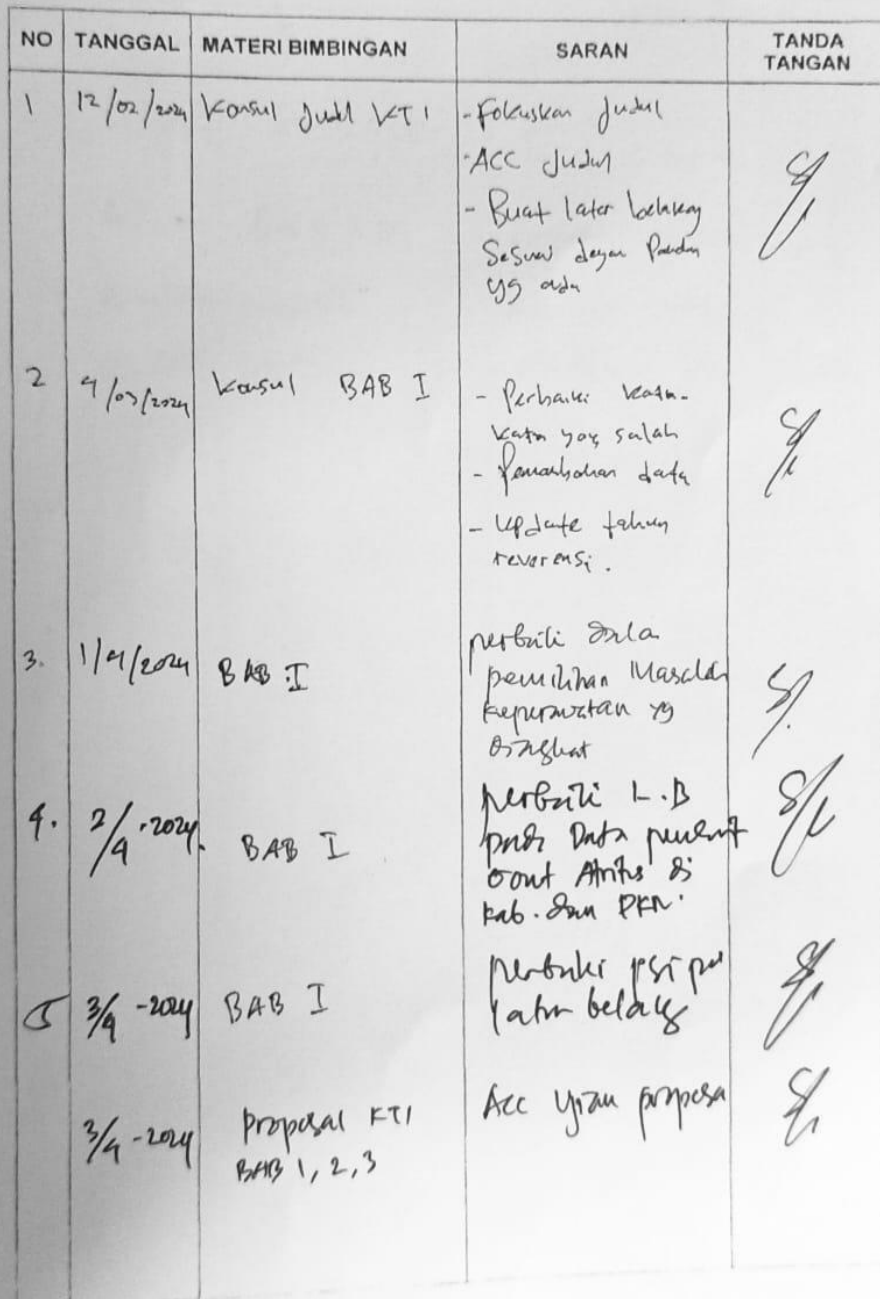 NO TANGGAL MATERI BIMBINGAN SARAN TANDA TANGAN
1 12/02/2024 Konsul Judul KTI - Fokuskan Judul
- ACC Judul
- Buat latar belakang
Sesuai dengan
yg ada
2 4/03/2024 Konsul BAB I - Perbaiki kata-
kata yang salah
- Penambahan data
- Update tahun
reverensi.
3. 1/4/2024 BAB I perbaiki dala
pemilihan Masalah
keperawatan yg
diangkat
4. 2/4-2024. BAB I perbaiki L.B
pada Data penderit
Gout Atritis di
kab. dan PKM.
5 3/4-2024 BAB I perbaiki
latar belakg
3/4-2024 Proposal KTI Acc Ujian proposa
BAB 1, 2, 3